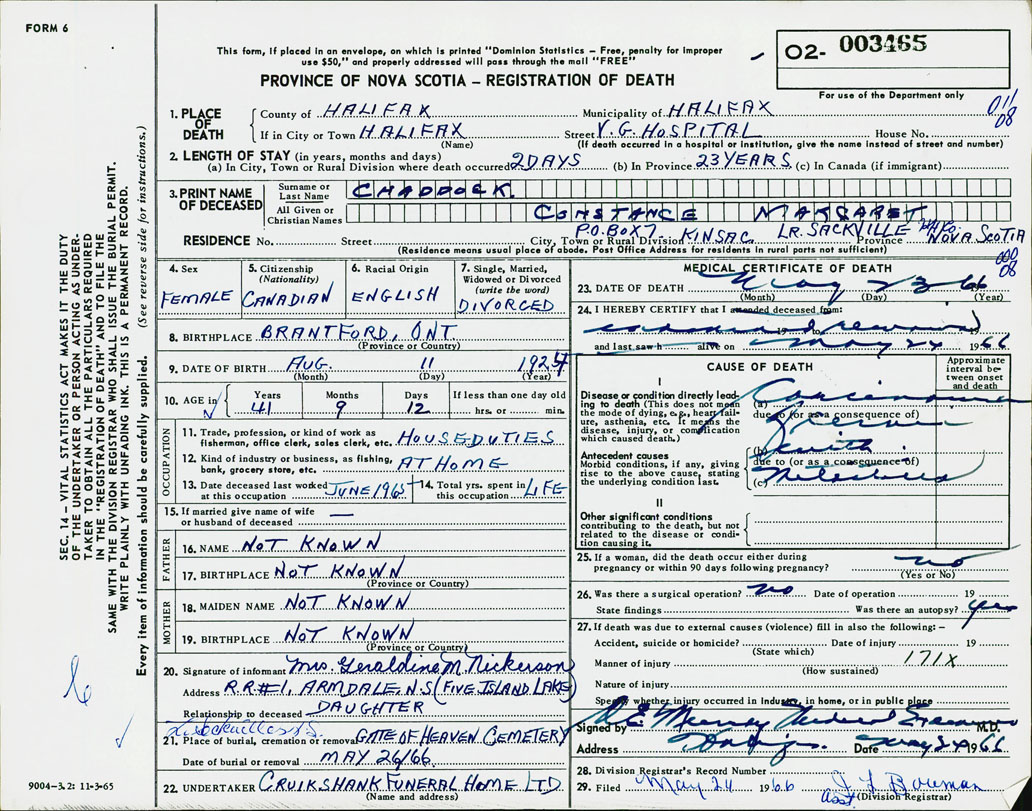 FORM 6
This form, if placed in an envelope, on which is printed "Dominion Statistics – Free, penalty for improper
use $50," and properly addressed will pass through the mail "FREE"
PROVINCE OF NOVA SCOTIA – REGISTRATION OF DEATH
02- 003465
For use of the Department only
011
08
1. PLACE OF DEATH
County of HALIFAX Municipality of HALIFAX
If in City or Town HALIFAX Street V.G. HOSPITAL House No.
(Name) (If death occurred in a hospital or institution, give the name instead of street and number)
2. LENGTH OF STAY (in years, months and days)
(a) In City, Town or Rural Division where death occurred 2 DAYS (b) In Province 23 YEARS (c) In Canada (if immigrant)
3. PRINT NAME OF DECEASED
Surname or Last Name CHADDOCK
All Given or Christian Names CONSTANCE MARGARET
P.O. BOX 7, KINSAC, LR. SACKVILLE NOVA SCOTIA
RESIDENCE No. Street City, Town or Rural Division Province
(Residence means usual place of abode. Post Office Address for residents in rural parts not sufficient)
000
08
4. Sex FEMALE
5. Citizenship (Nationality) CANADIAN
6. Racial Origin ENGLISH
7. Single, Married, Widowed or Divorced (write the word) DIVORCED
8. BIRTHPLACE BRANTFORD, ONT.
(Province or Country)
9. DATE OF BIRTH AUG. 11 1924
(Month) (Day) (Year)
10. AGE in Years 41 Months 9 Days 12 If less than one day old hrs. or min.
OCCUPATION
11. Trade, profession, or kind of work as fisherman, office clerk, sales clerk, etc. HOUSEDUTIES
12. Kind of industry or business, as fishing, bank, grocery store, etc. AT HOME
13. Date deceased last worked at this occupation JUNE 1965 14. Total yrs. spent in this occupation LIFE
15. If married give name of wife or husband of deceased —
FATHER
16. NAME NOT KNOWN
17. BIRTHPLACE NOT KNOWN
(Province or Country)
MOTHER
18. MAIDEN NAME NOT KNOWN
19. BIRTHPLACE NOT KNOWN
(Province or Country)
20. Signature of informant Mrs. Geraldine M. Nickerson
Address R.R.#1, ARMDALE, N.S (FIVE ISLAND LAKE)
Relationship to deceased DAUGHTER
21. Place of burial, cremation or removal GATE OF HEAVEN CEMETERY
Date of burial or removal MAY 26/66
22. UNDERTAKER CRUIKSHANK FUNERAL HOME LTD
(Name and address)
MEDICAL CERTIFICATE OF DEATH
23. DATE OF DEATH May 23 66
(Month) (Day) (Year)
24. I HEREBY CERTIFY that I attended deceased from:
19 to
and last saw h alive on May 24 1966
CAUSE OF DEATH
Approximate interval between onset and death
I
Disease or condition directly leading to death (This does not mean the mode of dying, e.g., heart failure, asthenia, etc. It means the disease, injury, or complication which caused death.)
(a) Carcinoma
due to (or as a consequence of)
Antecedent causes
Morbid conditions, if any, giving rise to the above cause, stating the underlying condition last.
(b) with
due to (or as a consequence of)
(c)
II
Other significant conditions contributing to the death, but not related to the disease or condition causing it.
25. If a woman, did the death occur either during pregnancy or within 90 days following pregnancy? no
(Yes or No)
26. Was there a surgical operation? no Date of operation 19
State findings Was there an autopsy? yes
27. If death was due to external causes (violence) fill in also the following: –
Accident, suicide or homicide? Date of injury 19
(State which)
Manner of injury 171X
(How sustained)
Nature of injury
Specify whether injury occurred in Industry, in home, or in public place
Signed by M.D.
Address Date May 24 1966
28. Division Registrar's Record Number
29. Filed May 24 1966
Asst (Division Registrar)
SEC. 14 – VITAL STATISTICS ACT MAKES IT THE DUTY
OF THE UNDERTAKER OR PERSON ACTING AS UNDER-
TAKER TO OBTAIN ALL THE PARTICULARS REQUIRED
IN THE "REGISTRATION OF DEATH" AND TO FILE THE
SAME WITH THE DIVISION REGISTRAR WHO SHALL ISSUE THE BURIAL PERMIT.
WRITE PLAINLY WITH UNFADING INK. THIS IS A PERMANENT RECORD.
Every item of information should be carefully supplied. (See reverse side for instructions.)
9004-3.2: 11-3-65